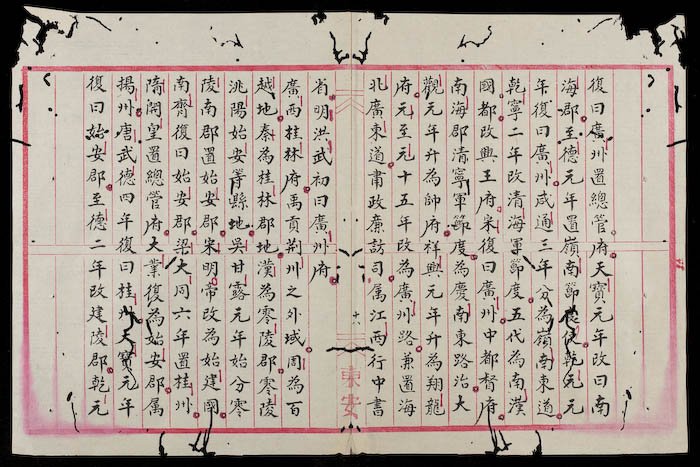 復曰廣州置總管府天寶元年改曰南
海郡至德元年置嶺南節度使乾元元
年復曰廣州咸通三年分為嶺南東道
乾寧二年改清海軍節度五代為南漢
國都改興王府宋復曰廣州中都督府
南海郡清寧軍節度為慶南東路治大
觀元年升為帥府祥興元年升為翔龍
府元至元十五年改為廣州路兼置海
北廣東道肅政廉訪司属江西行中書
十八
東安
省明洪武初曰廣州府
廣西桂林府禹貢荊州之外域周為百
越地秦為桂林郡地漢為零陵郡零陵
洮陽始安等縣地吳甘露元年始分零
陵南郡置始安郡宋明帝改為始建國
南齊復曰始安郡梁大同六年置桂州
隋開皇置總管府大業復為始安郡属
揚州唐武德四年復曰桂州天寶元年
復曰始安郡至德二年改建陵郡乾元